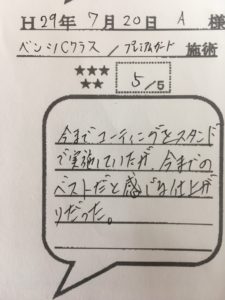 H29年 7月20日 A 様
ベンツCクラス / プレミアムガード 施術
★★★
★★
5/5
今までコーティングをスタンド
で実施していたが、今までの
ベストだと感じな仕上が
りだった。